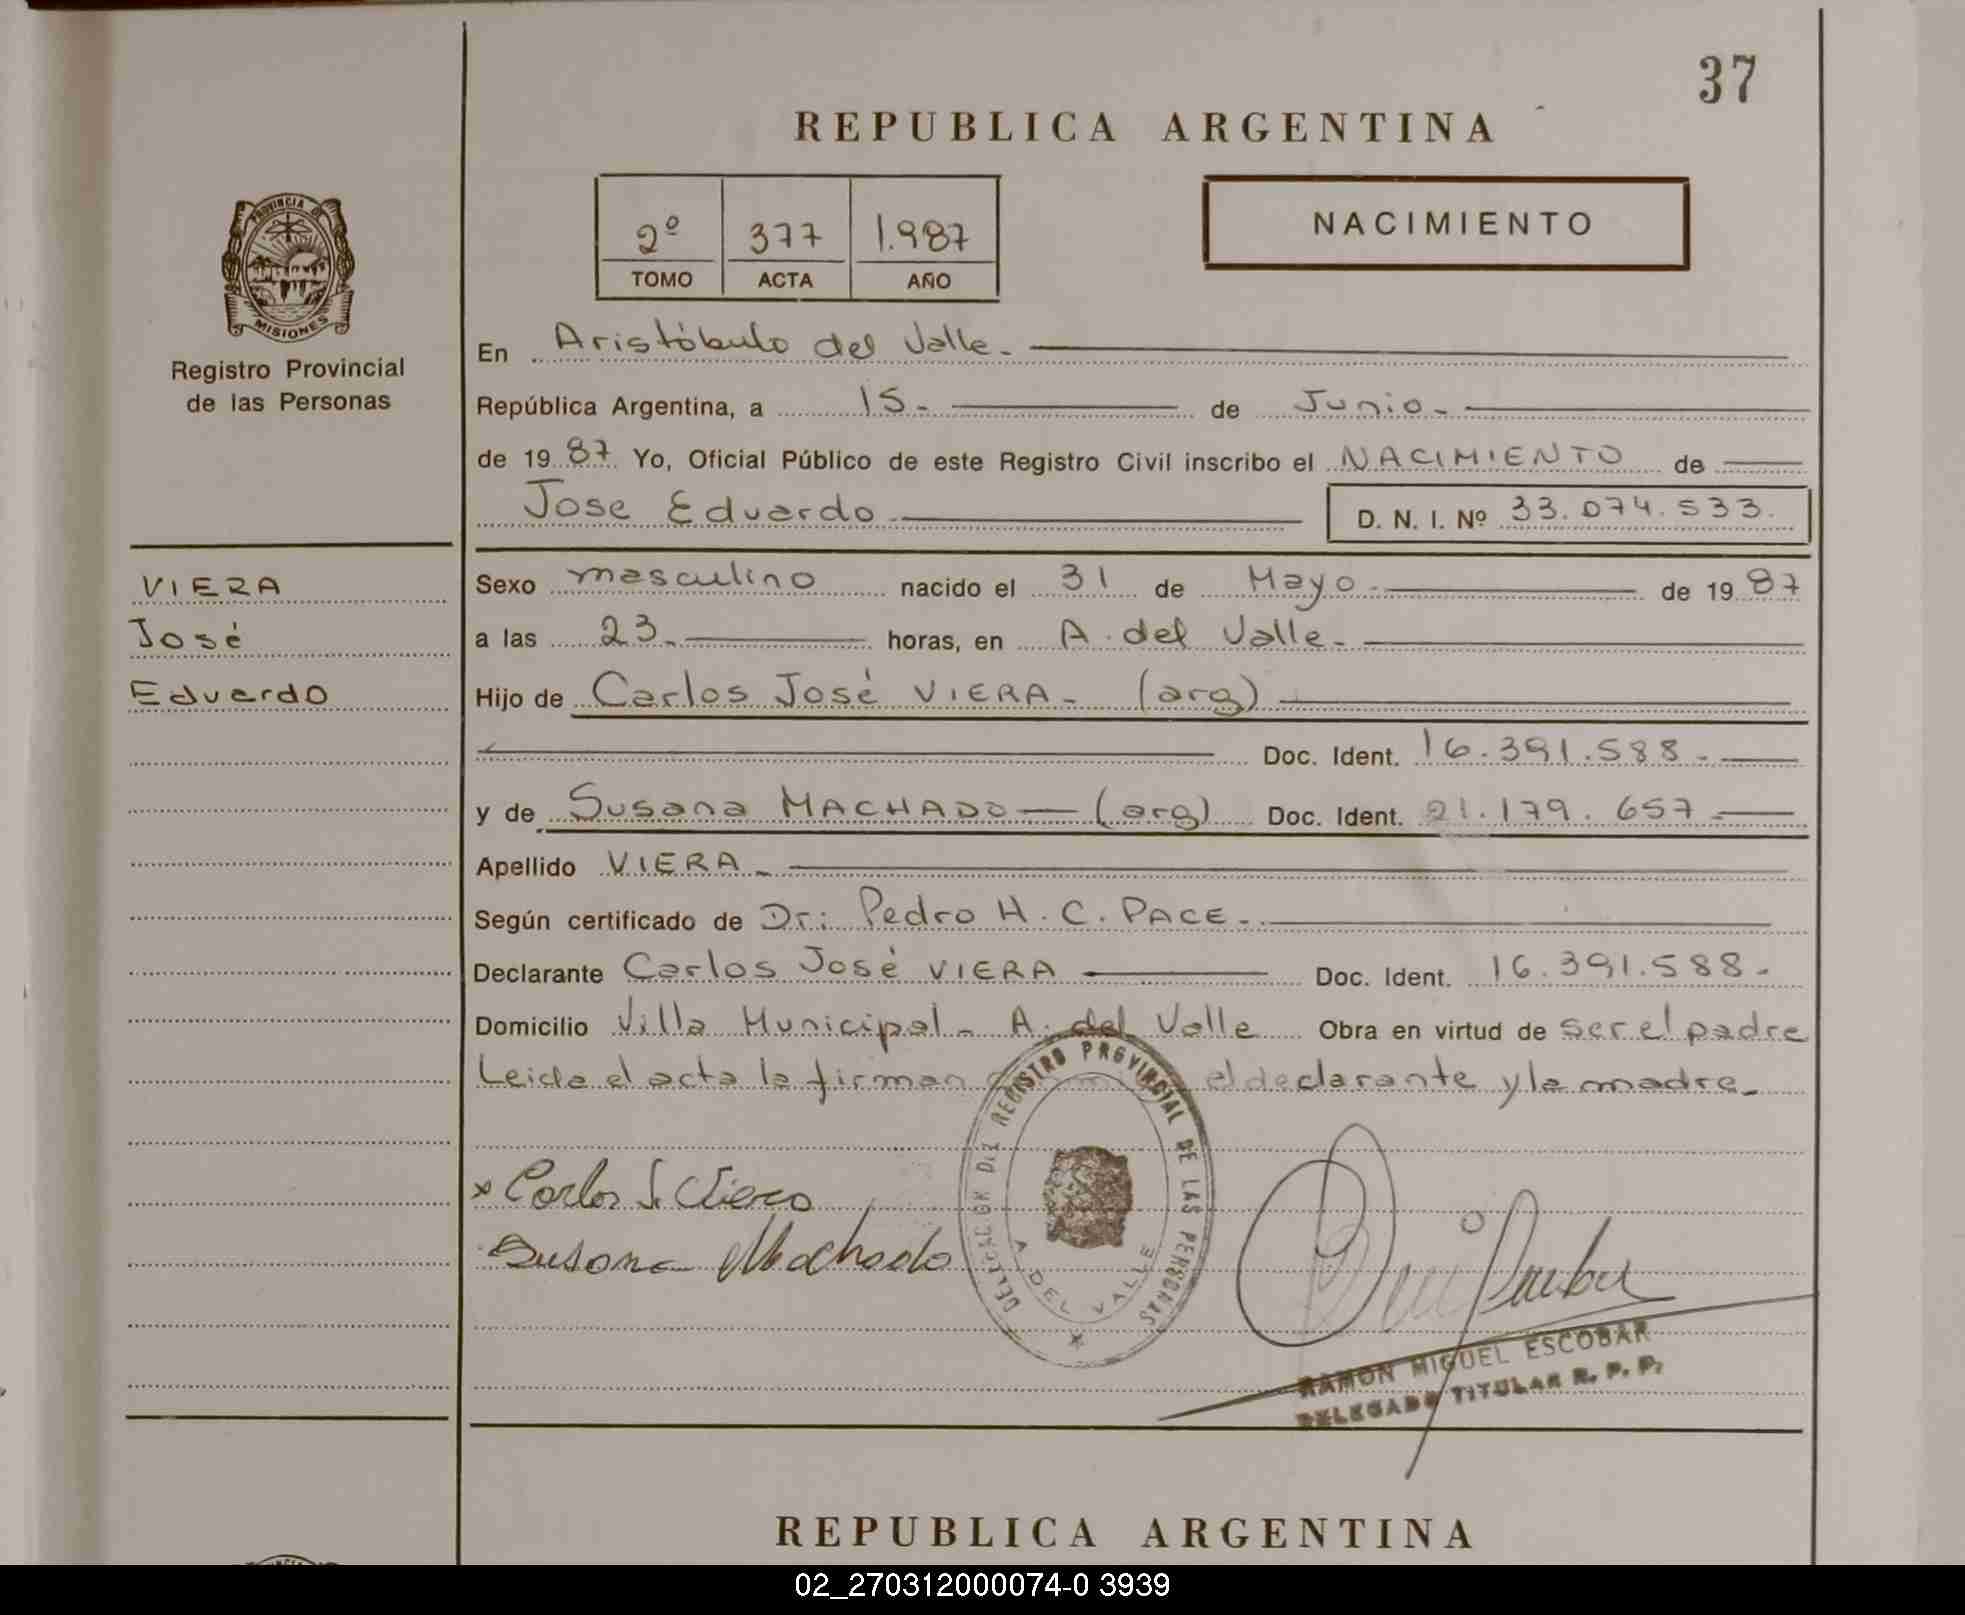 37
REPUBLICA ARGENTINA
PROVINCIA DE
MISIONES
Registro Provincial
de las Personas
2º 377 1.987
TOMO ACTA AÑO
NACIMIENTO
En Aristóbulo del Valle.
República Argentina, a 15. de Junio.
de 1987 Yo, Oficial Público de este Registro Civil inscribo el NACIMIENTO de
Jose Eduardo D. N. I. Nº 33.074.533.
VIERA
José
Eduardo
Sexo masculino nacido el 31 de Mayo. de 1987
a las 23. horas, en A. del Valle.
Hijo de Carlos José VIERA. (arg)
Doc. Ident. 16.391.588.
y de Susana MACHADO (arg) Doc. Ident. 21.179.657
Apellido VIERA.
Según certificado de Dr: Pedro H. C. PACE.
Declarante Carlos José VIERA Doc. Ident. 16.391.588.
Domicilio Villa Municipal. A. del Valle Obra en virtud de ser el padre
Leida el acta la firman el declarante y la madre.
DELEGACION DEL REGISTRO PROVINCIAL DE LAS PERSONAS
A. DEL VALLE
x Carlos J. Viera
Susana Machado
RAMON MIGUEL ESCOBAR
DELEGADO TITULAR R. P. P.
REPUBLICA ARGENTINA
02_270312000074-0 3939